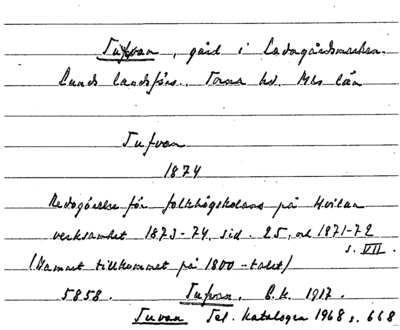 Tufvan, gård i Ladugårdsmarken.
Lunds landsförs. Torna hd. Mhs län
Tufvan
1874
Redogörelse för folkhögskolans på Hvilan
verksamhet 1873-74, sid. 25, och 1871-72
s. VII.
(Namnet tillkommet på 1800-talet)
5858. Tufvan. E.K. 1917.
Tuvan Tel. katalogen 1968 s. 668